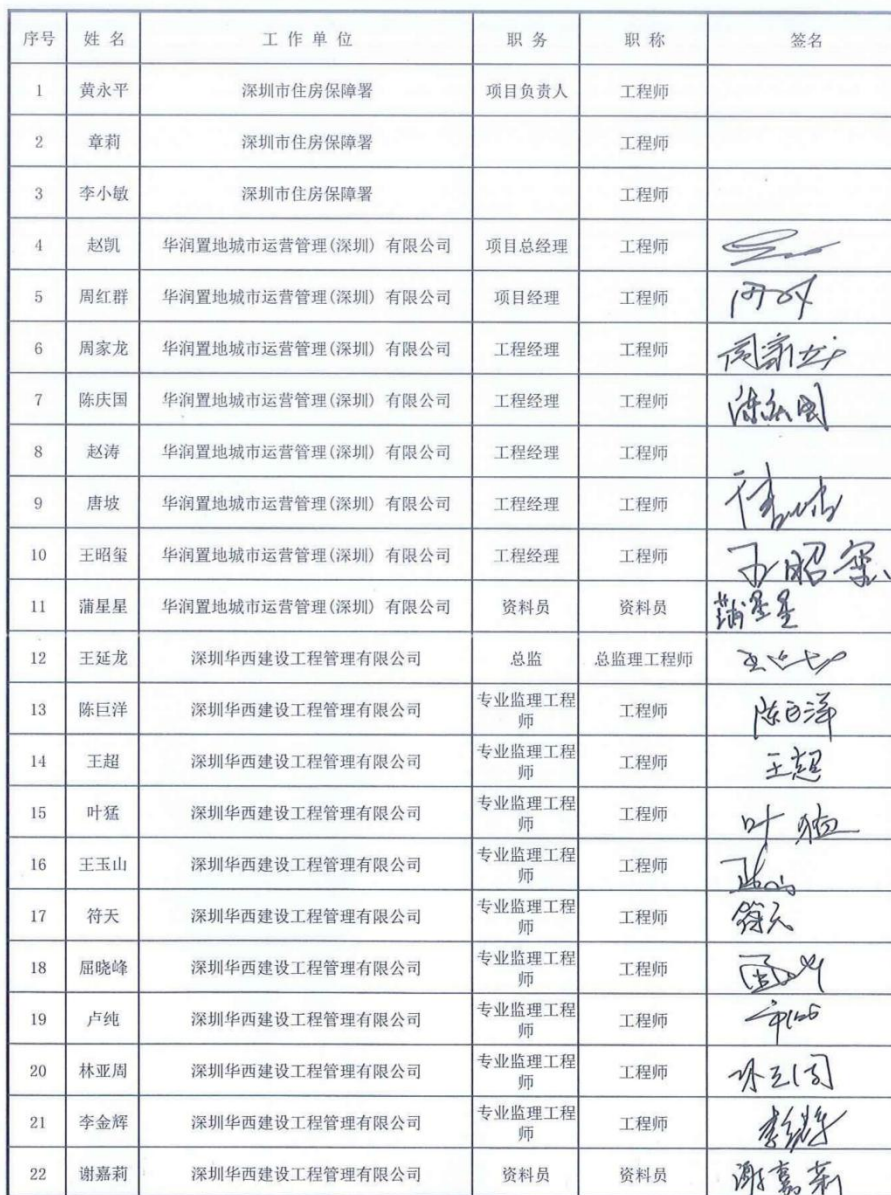 序号 姓 名 工 作 单 位 职 务 职 称 签名
1 黄永平 深圳市住房保障署 项目负责人 工程师
2 章莉 深圳市住房保障署 工程师
3 李小敏 深圳市住房保障署 工程师
4 赵凯 华润置地城市运营管理(深圳) 有限公司 项目总经理 工程师
5 周红群 华润置地城市运营管理(深圳) 有限公司 项目经理 工程师
6 周家龙 华润置地城市运营管理(深圳) 有限公司 工程经理 工程师 周家龙
7 陈庆国 华润置地城市运营管理(深圳) 有限公司 工程经理 工程师 陈庆国
8 赵涛 华润置地城市运营管理(深圳) 有限公司 工程经理 工程师
9 唐坡 华润置地城市运营管理(深圳) 有限公司 工程经理 工程师
10 王昭玺 华润置地城市运营管理(深圳) 有限公司 工程经理 工程师 王昭玺
11 蒲星星 华润置地城市运营管理(深圳) 有限公司 资料员 资料员 蒲星星
12 王延龙 深圳华西建设工程管理有限公司 总监 总监理工程师
13 陈巨洋 深圳华西建设工程管理有限公司 专业监理工程师 工程师 陈巨洋
14 王超 深圳华西建设工程管理有限公司 专业监理工程师 工程师 王超
15 叶猛 深圳华西建设工程管理有限公司 专业监理工程师 工程师 叶猛
16 王玉山 深圳华西建设工程管理有限公司 专业监理工程师 工程师
17 符天 深圳华西建设工程管理有限公司 专业监理工程师 工程师 符天
18 屈晓峰 深圳华西建设工程管理有限公司 专业监理工程师 工程师
19 卢纯 深圳华西建设工程管理有限公司 专业监理工程师 工程师
20 林亚周 深圳华西建设工程管理有限公司 专业监理工程师 工程师 林亚周
21 李金辉 深圳华西建设工程管理有限公司 专业监理工程师 工程师 李金辉
22 谢嘉莉 深圳华西建设工程管理有限公司 资料员 资料员 谢嘉莉